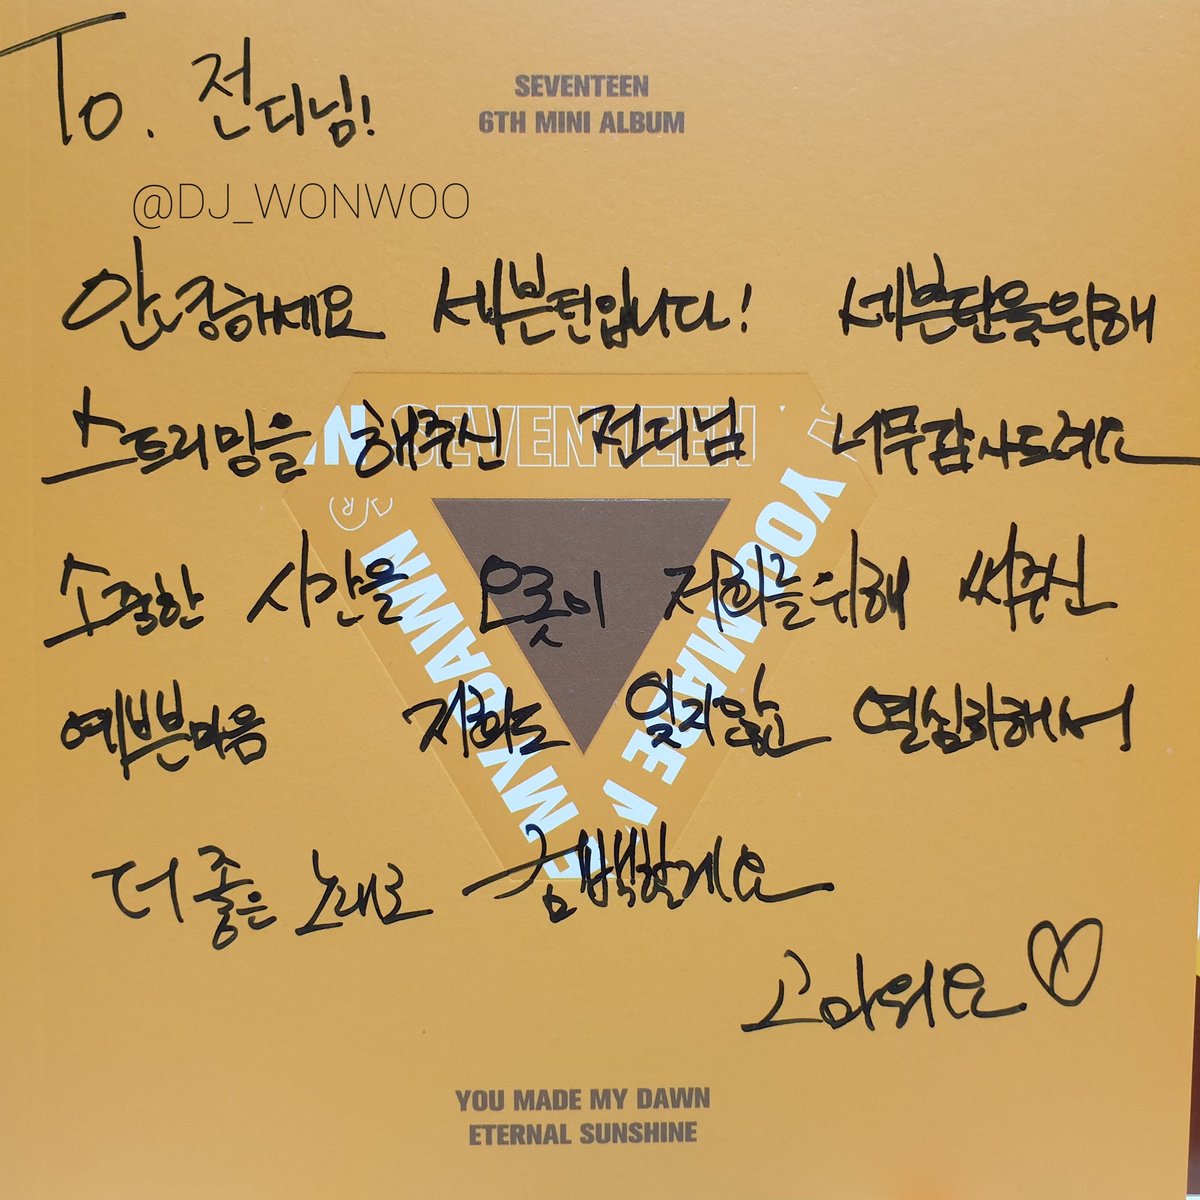 To. 전디님!
SEVENTEEN
6TH MINI ALBUM
@DJ_WONWOO
안녕하세요 세븐틴입니다! 세븐틴을위해
스트리밍을 해주신 전디님 너무감사드려요
SEVENTEEN
소중한 시간을 오롯이 저희를위해 써주신
예쁜마음 저희도 잊지않고 열심히해서
YOU MADE MY DAWN
더 좋은 노래로 컴백할게요
고마워요♡
YOU MADE MY DAWN
ETERNAL SUNSHINE